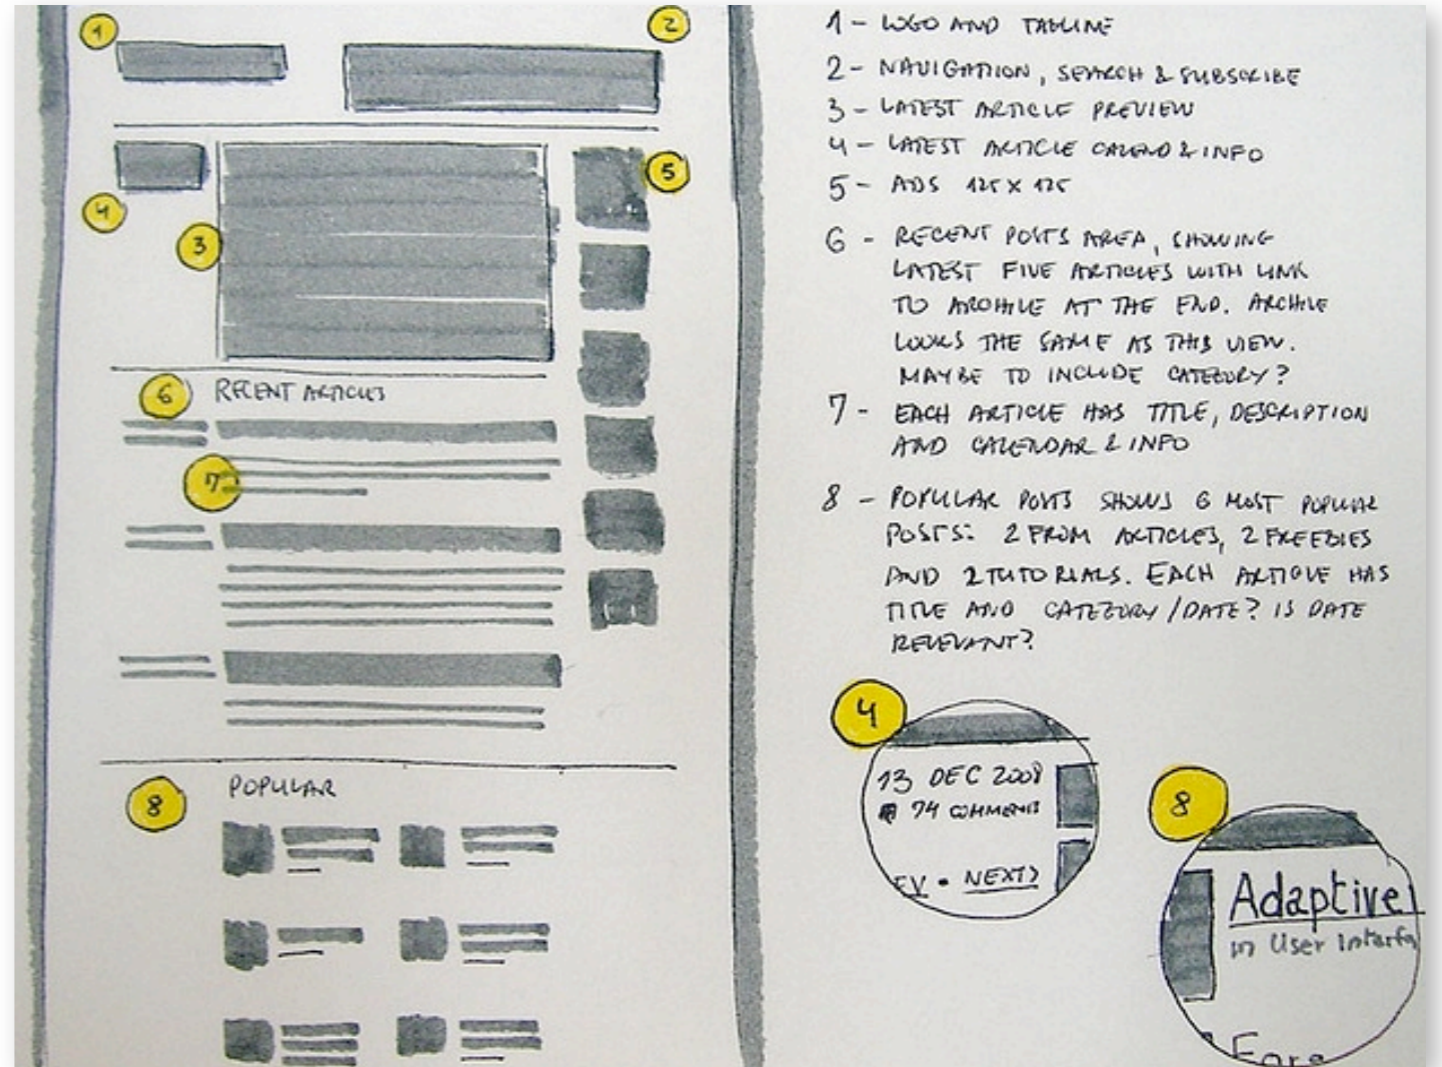 1
2
5
4
3
6 RECENT ARTICLES
7
8 POPULAR
1 - LOGO AND TAGLINE
2 - NAVIGATION, SEARCH & SUBSCRIBE
3 - LATEST ARTICLE PREVIEW
4 - LATEST ARTICLE CALEND & INFO
5 - ADS 125 X 125
6 - RECENT POSTS AREA, SHOWING
LATEST FIVE ARTICLES WITH LINK
TO ARCHIVE AT THE END. ARCHIVE
LOOKS THE SAME AS THIS VIEW.
MAYBE TO INCLUDE CATEGORY?
7 - EACH ARTICLE HAS TITLE, DESCRIPTION
AND CALENDAR & INFO
8 - POPULAR POSTS SHOWS 6 MOST POPULAR
POSTS: 2 FROM ARTICLES, 2 FREEBIES
AND 2 TUTORIALS. EACH ARTICLE HAS
TITLE AND CATEGORY/DATE? IS DATE
RELEVANT?
4
13 DEC 2008
74 COMMENTS
EV • NEXT>
8
Adaptive
in User Interfa